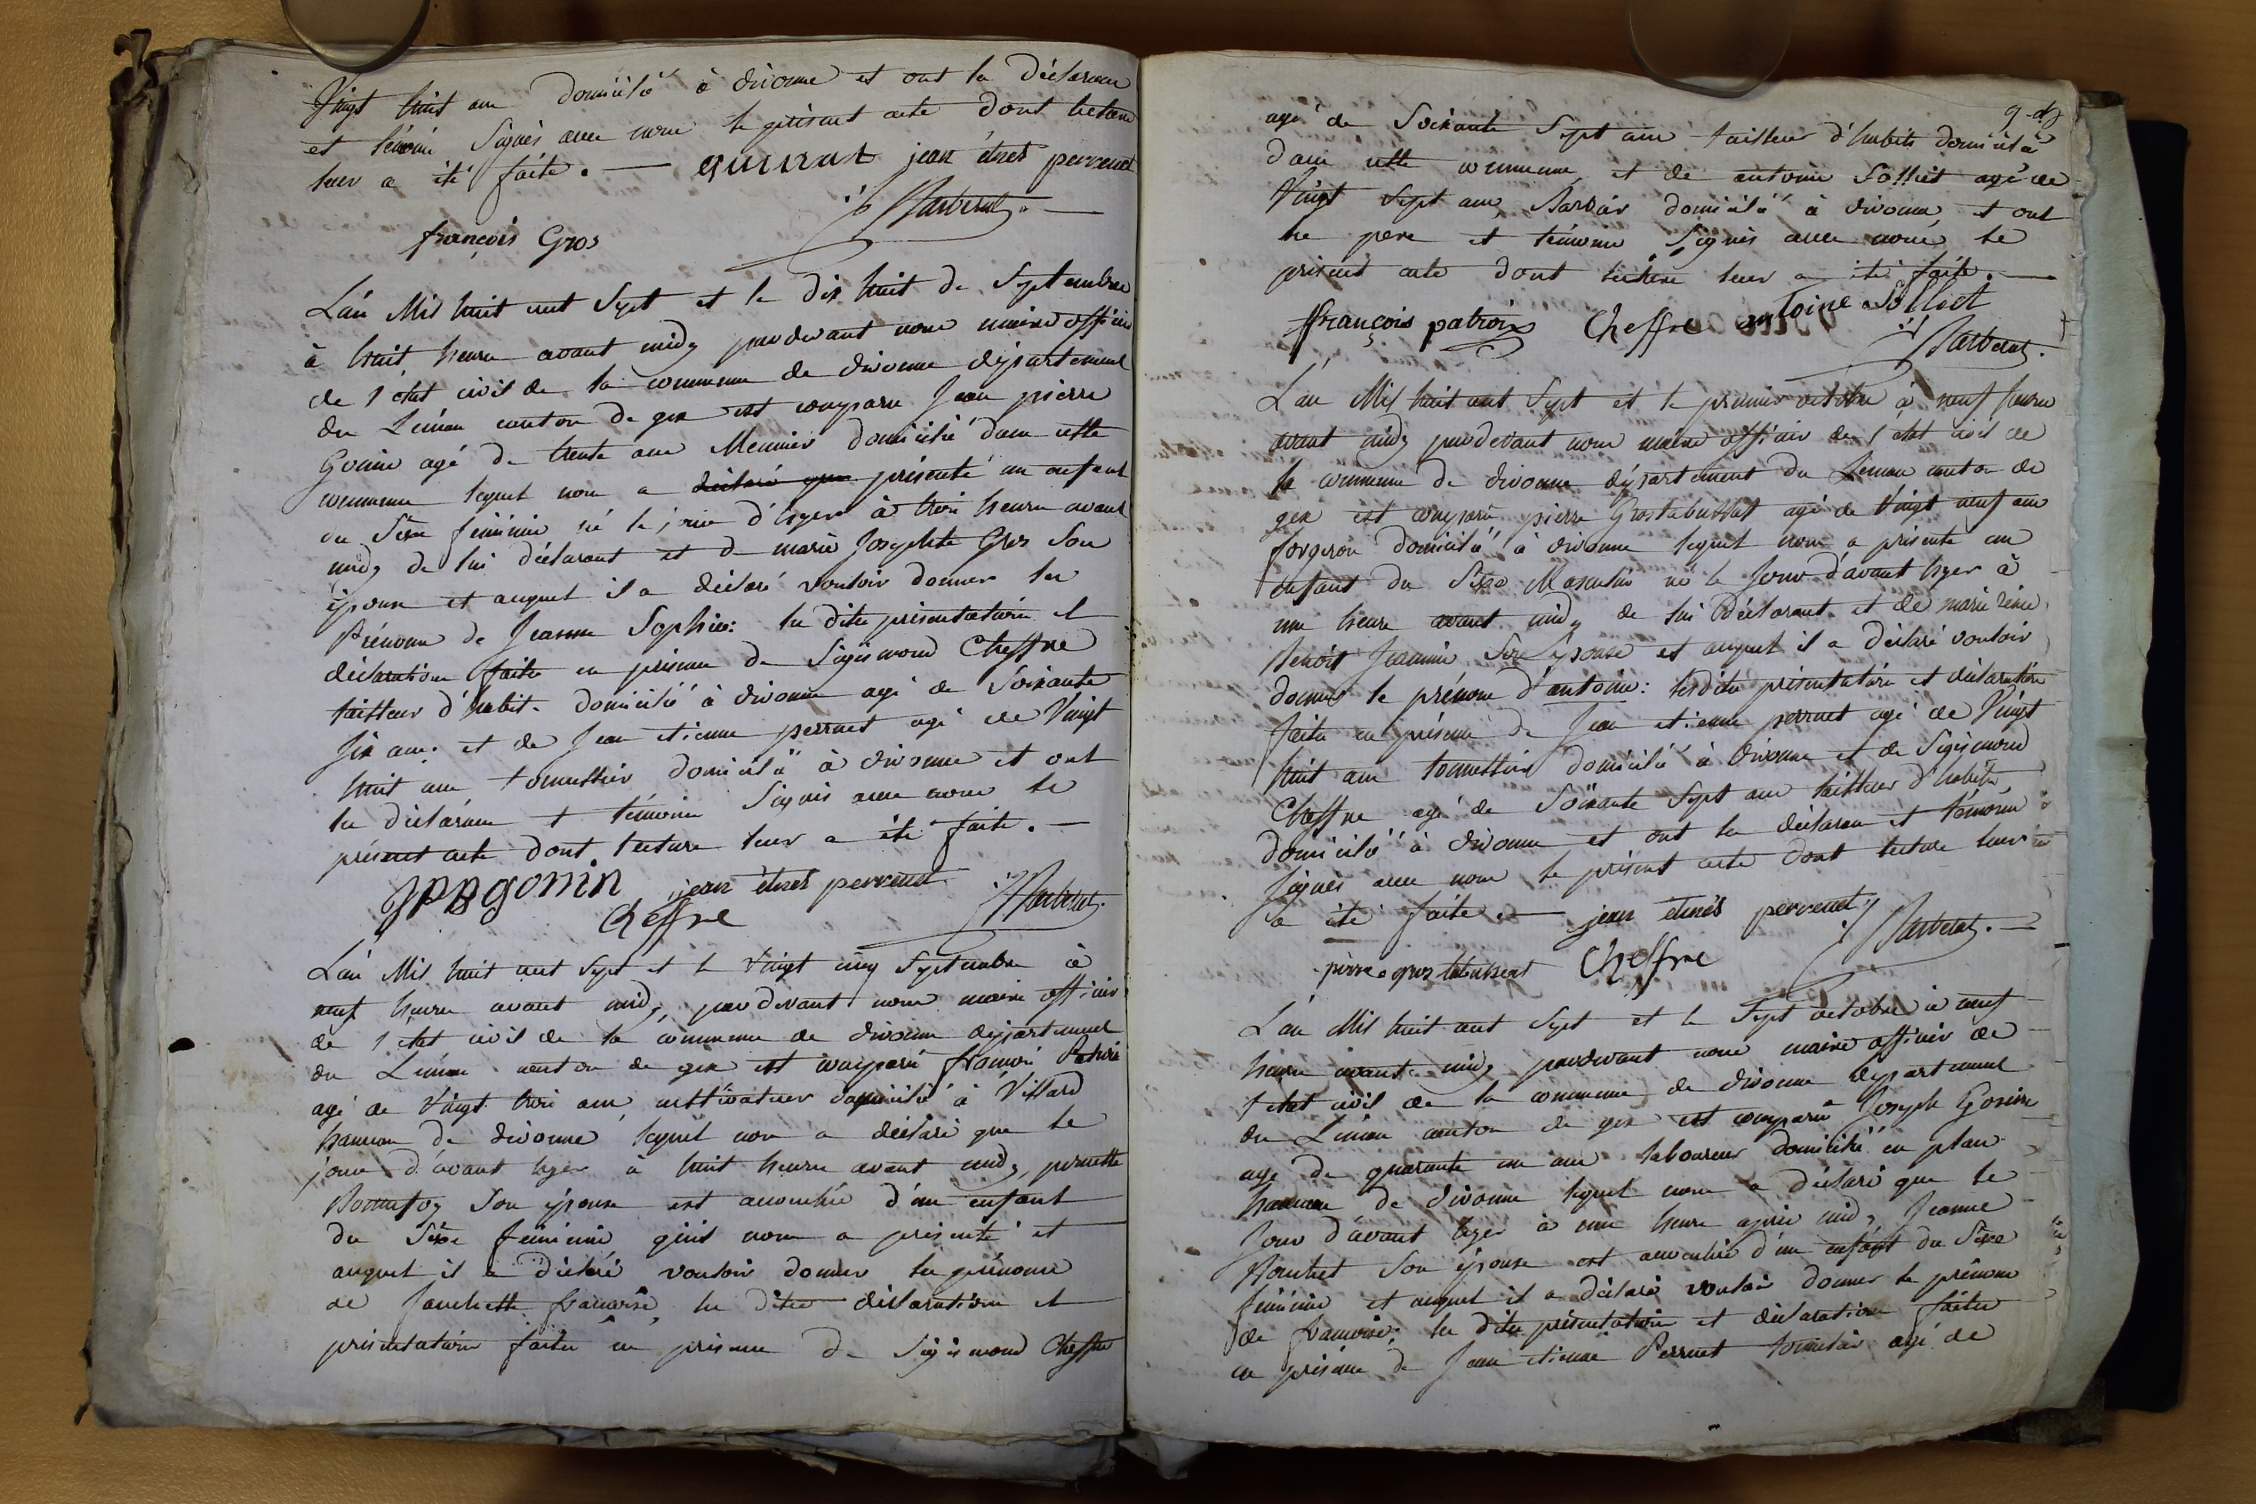 Vingt huit ans domicilié à divonne et ont les déclarans
et témoins signés avec nous le présent acte dont lecture
leur a été faite. — jean étnés perrenet
françois Gros
L'an Mil huit cent Sept et le dix huit de Septembre
à huit heures avant midy pardevant nous maire officier
de l'etat civil de la commune de divonne département
du Léman canton de gex est comparu Jean pierre
Gonin agé de trente ans Meunier domicilié dans cette
commune lequel nous a déclaré que présenté un enfant
du Sexe féminin né le jour d'hyer à trois heures avant
midy de lui déclarant et de marie Josephte Gros Son
épouse et auquel il a déclaré vouloir donner les
Prénoms de Jeanne Sophie: les dites présentation et
déclaration faites en présence de Sigismond Cheffre
tailleur d'habit domicilié à divonne agé de Soixante
Six ans. et de Jean etienne perrnet agé de Vingt
huit ans tonnellier domicilié à divonne et ont
les déclarans et témoins Signés avec nous le
présent acte dont lecture leur a été faite. —
JPB gonin jean étnés perrenet
Cheffre
L'an Mil huit cent Sept et le Vingt cinq Septembre à
neuf heures avant midy pardevant nous maire officier
de l'etat civil de la commune de divonne département
du Léman canton de gex est comparu françois
agé de Vingt trois ans cultivateur domicilié à Villard
hameau de divonne lequel nous a déclaré que le
jour d'avant hyer à huit heures avant midy, pernette
Son épouse est accouchée d'un enfant
du Sexe féminin qu'il nous a présenté et
auquel il a déclaré vouloir donner les prénoms
de françoise, les dites déclaration et
présentation faites en présence de Sigismond Cheffre
9
agé de Soixante Sept ans tailleur d'habits domicilié
dans cette commune, et de antoine Solliet agé de
Vingt Sept ans, domicilié à divonne, et ont
les pere et témoins Signés avec nous le
présent acte dont lecture leur a été faite. —
françois patroix Cheffre antoine Solliet
L'an Mil huit cent Sept et le premier octobre à neuf heures
avant midy pardevant nous maire officier de l'etat civil de
la commune de divonne département du Leman canton de
gex est comparu pierre agé de Vingt neuf ans
forgeron domicilié à divonne lequel nous a présenté un
enfant du Sexe Masculin né le Jour d'avant hyer à
une heure avant midy de lui déclarant et de marie
Benoit Jeannin Son épouse et auquel il a déclaré vouloir
donner le prénom d'antoine: lesdites présentation et déclaration
faites en présence de Jean etienne perrnet agé de Vingt
huit ans tonnellier domicilié à divonne et de Sigismond
Cheffre agé de Soixante Sept ans tailleur d'habits
domicilié à divonne et ont les déclarans et témoins
Signés avec nous le présent acte dont lecture leur
a été faite. — jean étnés perrenet
pierre Cheffre
L'an Mil huit cent Sept et le Sept octobre à neuf
heures avant midy pardevant nous maire officier de
l'etat civil de la commune de divonne département
du Léman canton de gex est comparu Joseph Gonin
agé de quarante un ans laboureur domicilié en plan
hameau de divonne lequel nous a déclaré que le
Jour d'avant hyer à une heure après midy Jeanne
Son épouse est accouchée d'un enfant du Sexe
féminin et auquel il a déclaré vouloir donner le prénom
de françoise; les dites présentation et déclaration faites
en présence de Jean etienne Perrnet agé de